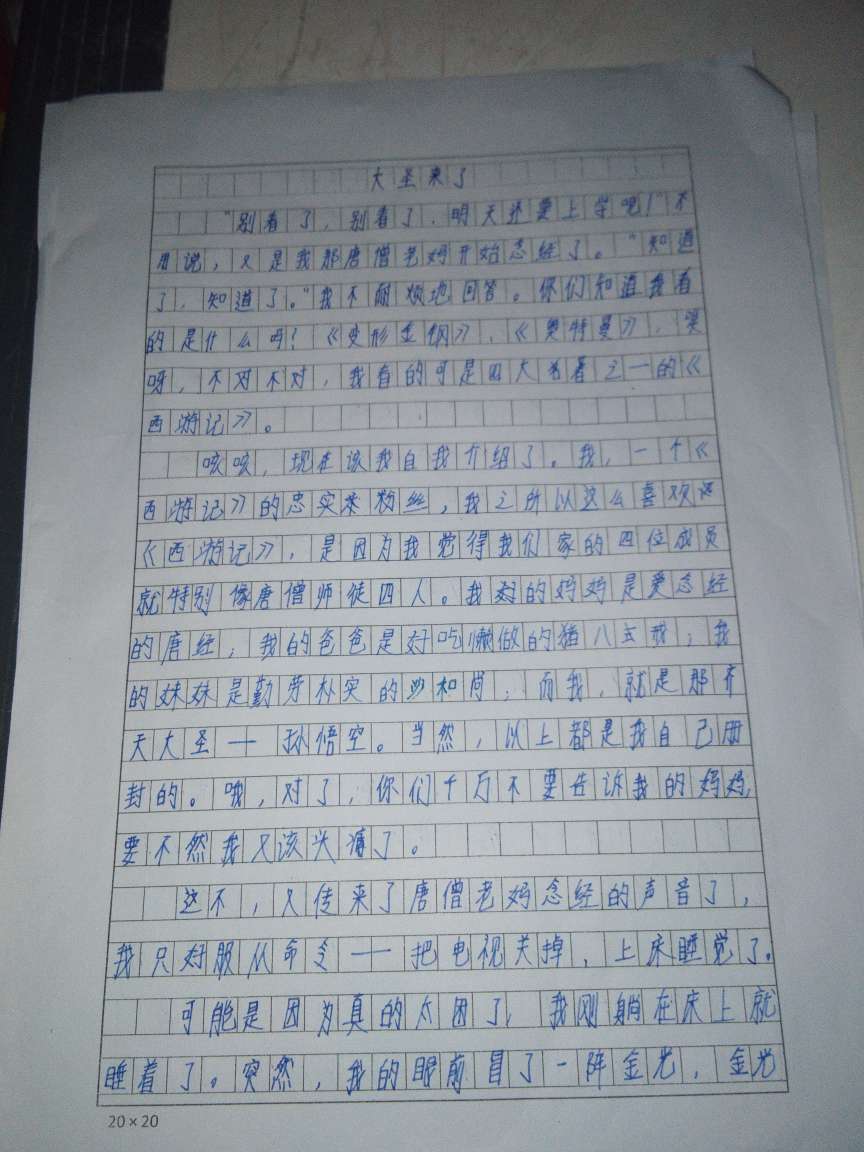 大圣来了
“别看了，别看了，明天还要上学呢！”不
用说，又是我那唐僧老妈开始念经了。“知道
了，知道了。”我不耐烦地回答。你们知道我看
的是什么吗？《变形金钢》，《奥特曼》，哭
呀，不对不对，我看的可是四大名著之一的《
西游记》。
咳咳，现在该我自我介绍了。我，一个《
西游记》的忠实粉丝，我之所以这么喜欢
《西游记》，是因为我觉得我们家的四位成员
就特别像唐僧师徒四人。我的妈妈是爱念经
的唐经，我的爸爸是好吃懒做的猪八戒，我
的妹妹是勤劳朴实的沙和尚，而我，就是那齐
天大圣——孙悟空。当然，以上都是我自己册
封的。哦，对了，你们千万不要告诉我的妈妈，
要不然我又该头痛了。
这不，又传来了唐僧老妈念经的声音了，
我只好服从命令——把电视关掉，上床睡觉了。
可能是因为真的太困了，我刚躺在床上就
睡着了。突然，我的眼前冒了一阵金光，金光
20×20